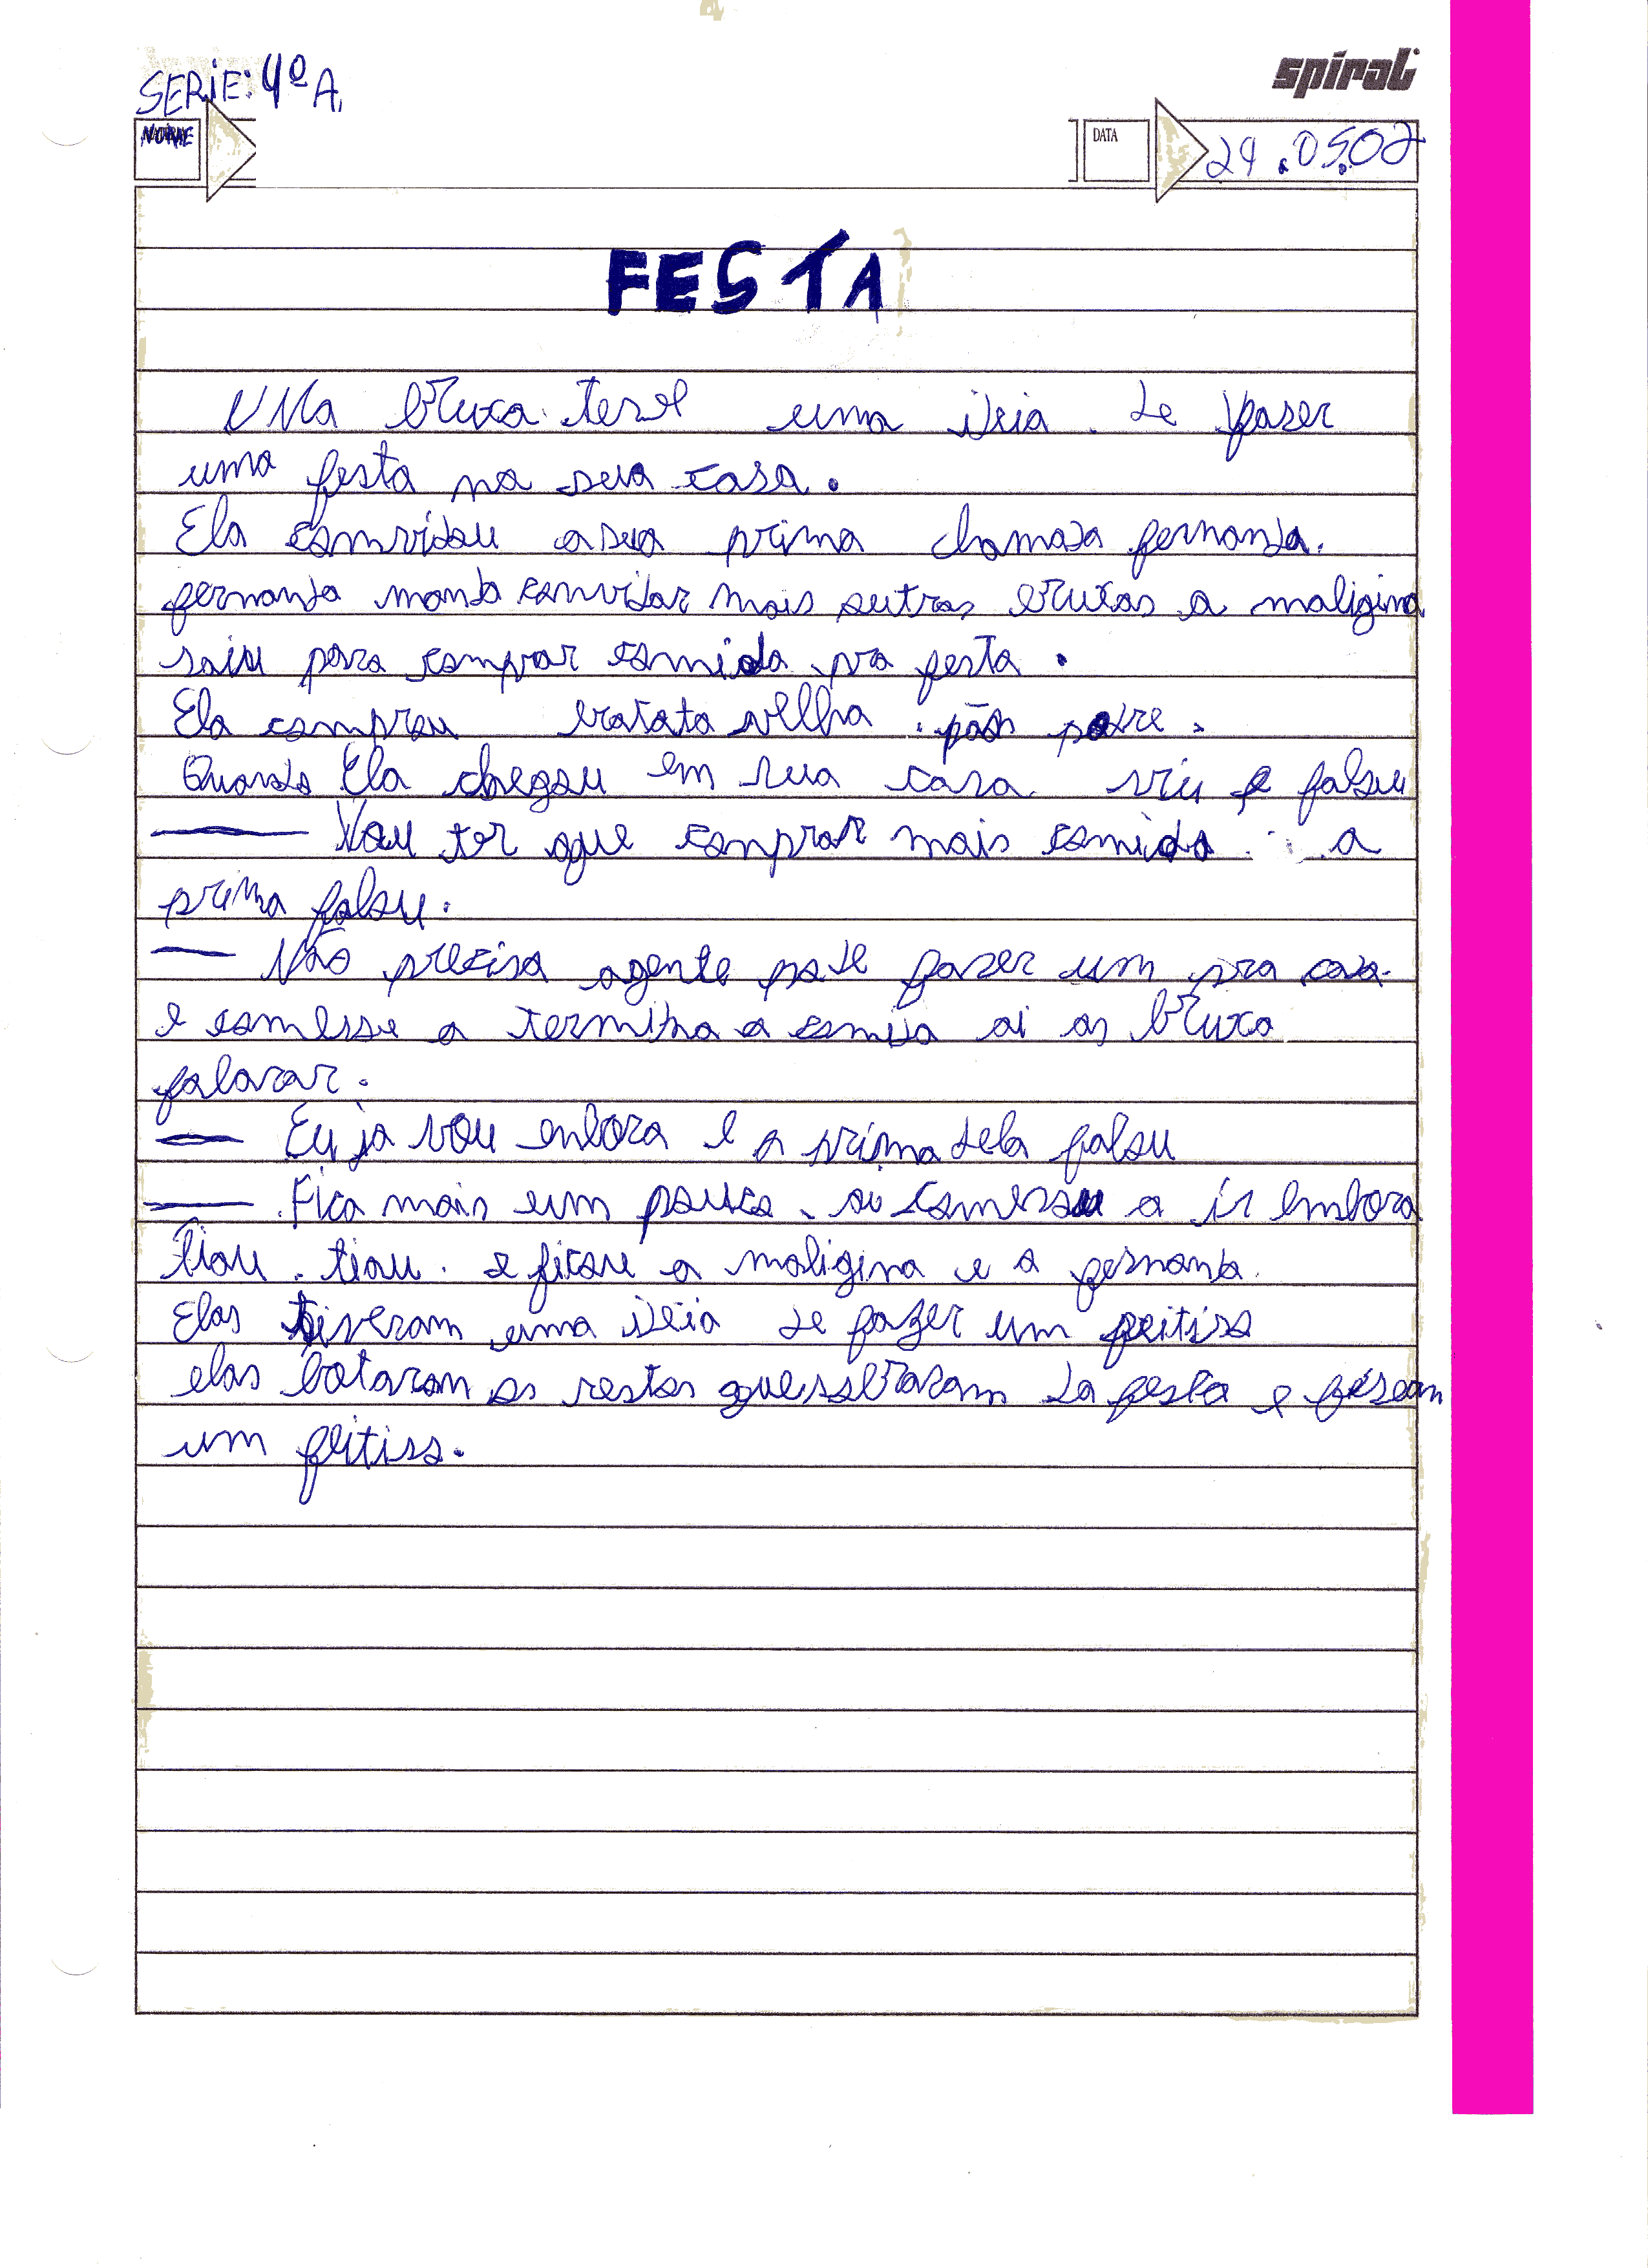 SERIE: 4º A.
spiral
NOME
DATA
29.05.02
FESTA
UMa bruxa teve uma ideia de faser
uma festa na sua casa.
Ela comvidou asua prima chamada fernanda.
fernanda mando convidar mais outras bruxas a maligina
saiu para comprar comida pra festa.
Ela comprou batata velha. pão podre.
Quando Ela chegou em sua casa viu e falou
— Vou ter que comprar mais comida a
prima falou.
— Não precisa agente pode faser um pra cada
e comesse a termina a comida ai as bruxa
falarar.
— Eu ja vou enbora e a prima dela falou
— Fica mais um pouco. ai comersou a ir embora
tiau. tiau. e ficou a maligina e a fernanda.
Elas tiveram uma ideia de fazer um feitiso
elas botaram os restos quessobraram da festa e
um feitiso.